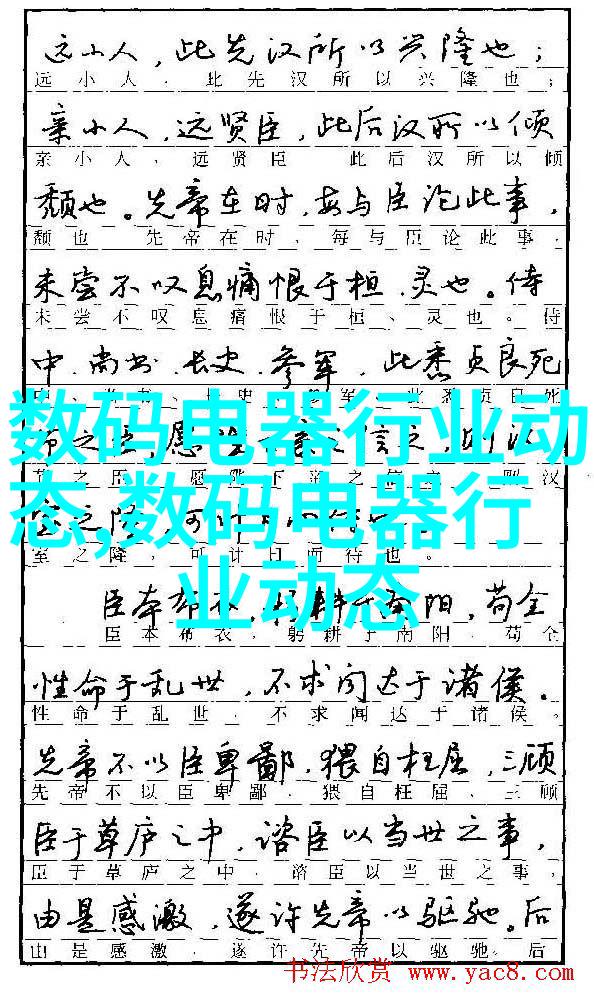 远小人，此先汉所以兴隆也；
远小人，此先汉所以兴隆也；
亲小人，远贤臣，此后汉所以倾
亲小人，远贤臣 此后汉所以倾
颓也。先帝在时，每与臣论此事，
颓也 先帝在时，每与臣论此事，
未尝不叹息痛恨于桓、灵也。侍
未尝不叹息痛恨于桓、灵也。侍
中、尚书、长史、参军，此悉贞良死
数码电器行业动
态,数码电器行
业动态
室之隆，可计日而待也。
臣本布衣，躬耕于南阳，苟全
臣本布衣，躬耕于南阳，苟全
性命于乱世，不求闻达于诸侯。
性命于乱世，不求闻达于诸侯。
先帝不以臣卑鄙，猥自枉屈，三顾
先帝不以臣卑鄙，猥自枉屈、三顾
臣于草庐之中，谘臣以当世之事，
臣于草庐之中，谘臣以当世之事，
由是感激，遂许先帝以驱驰。后
由是感激，遂许先帝以驱驰。后
书法欣赏 www.yac8.com